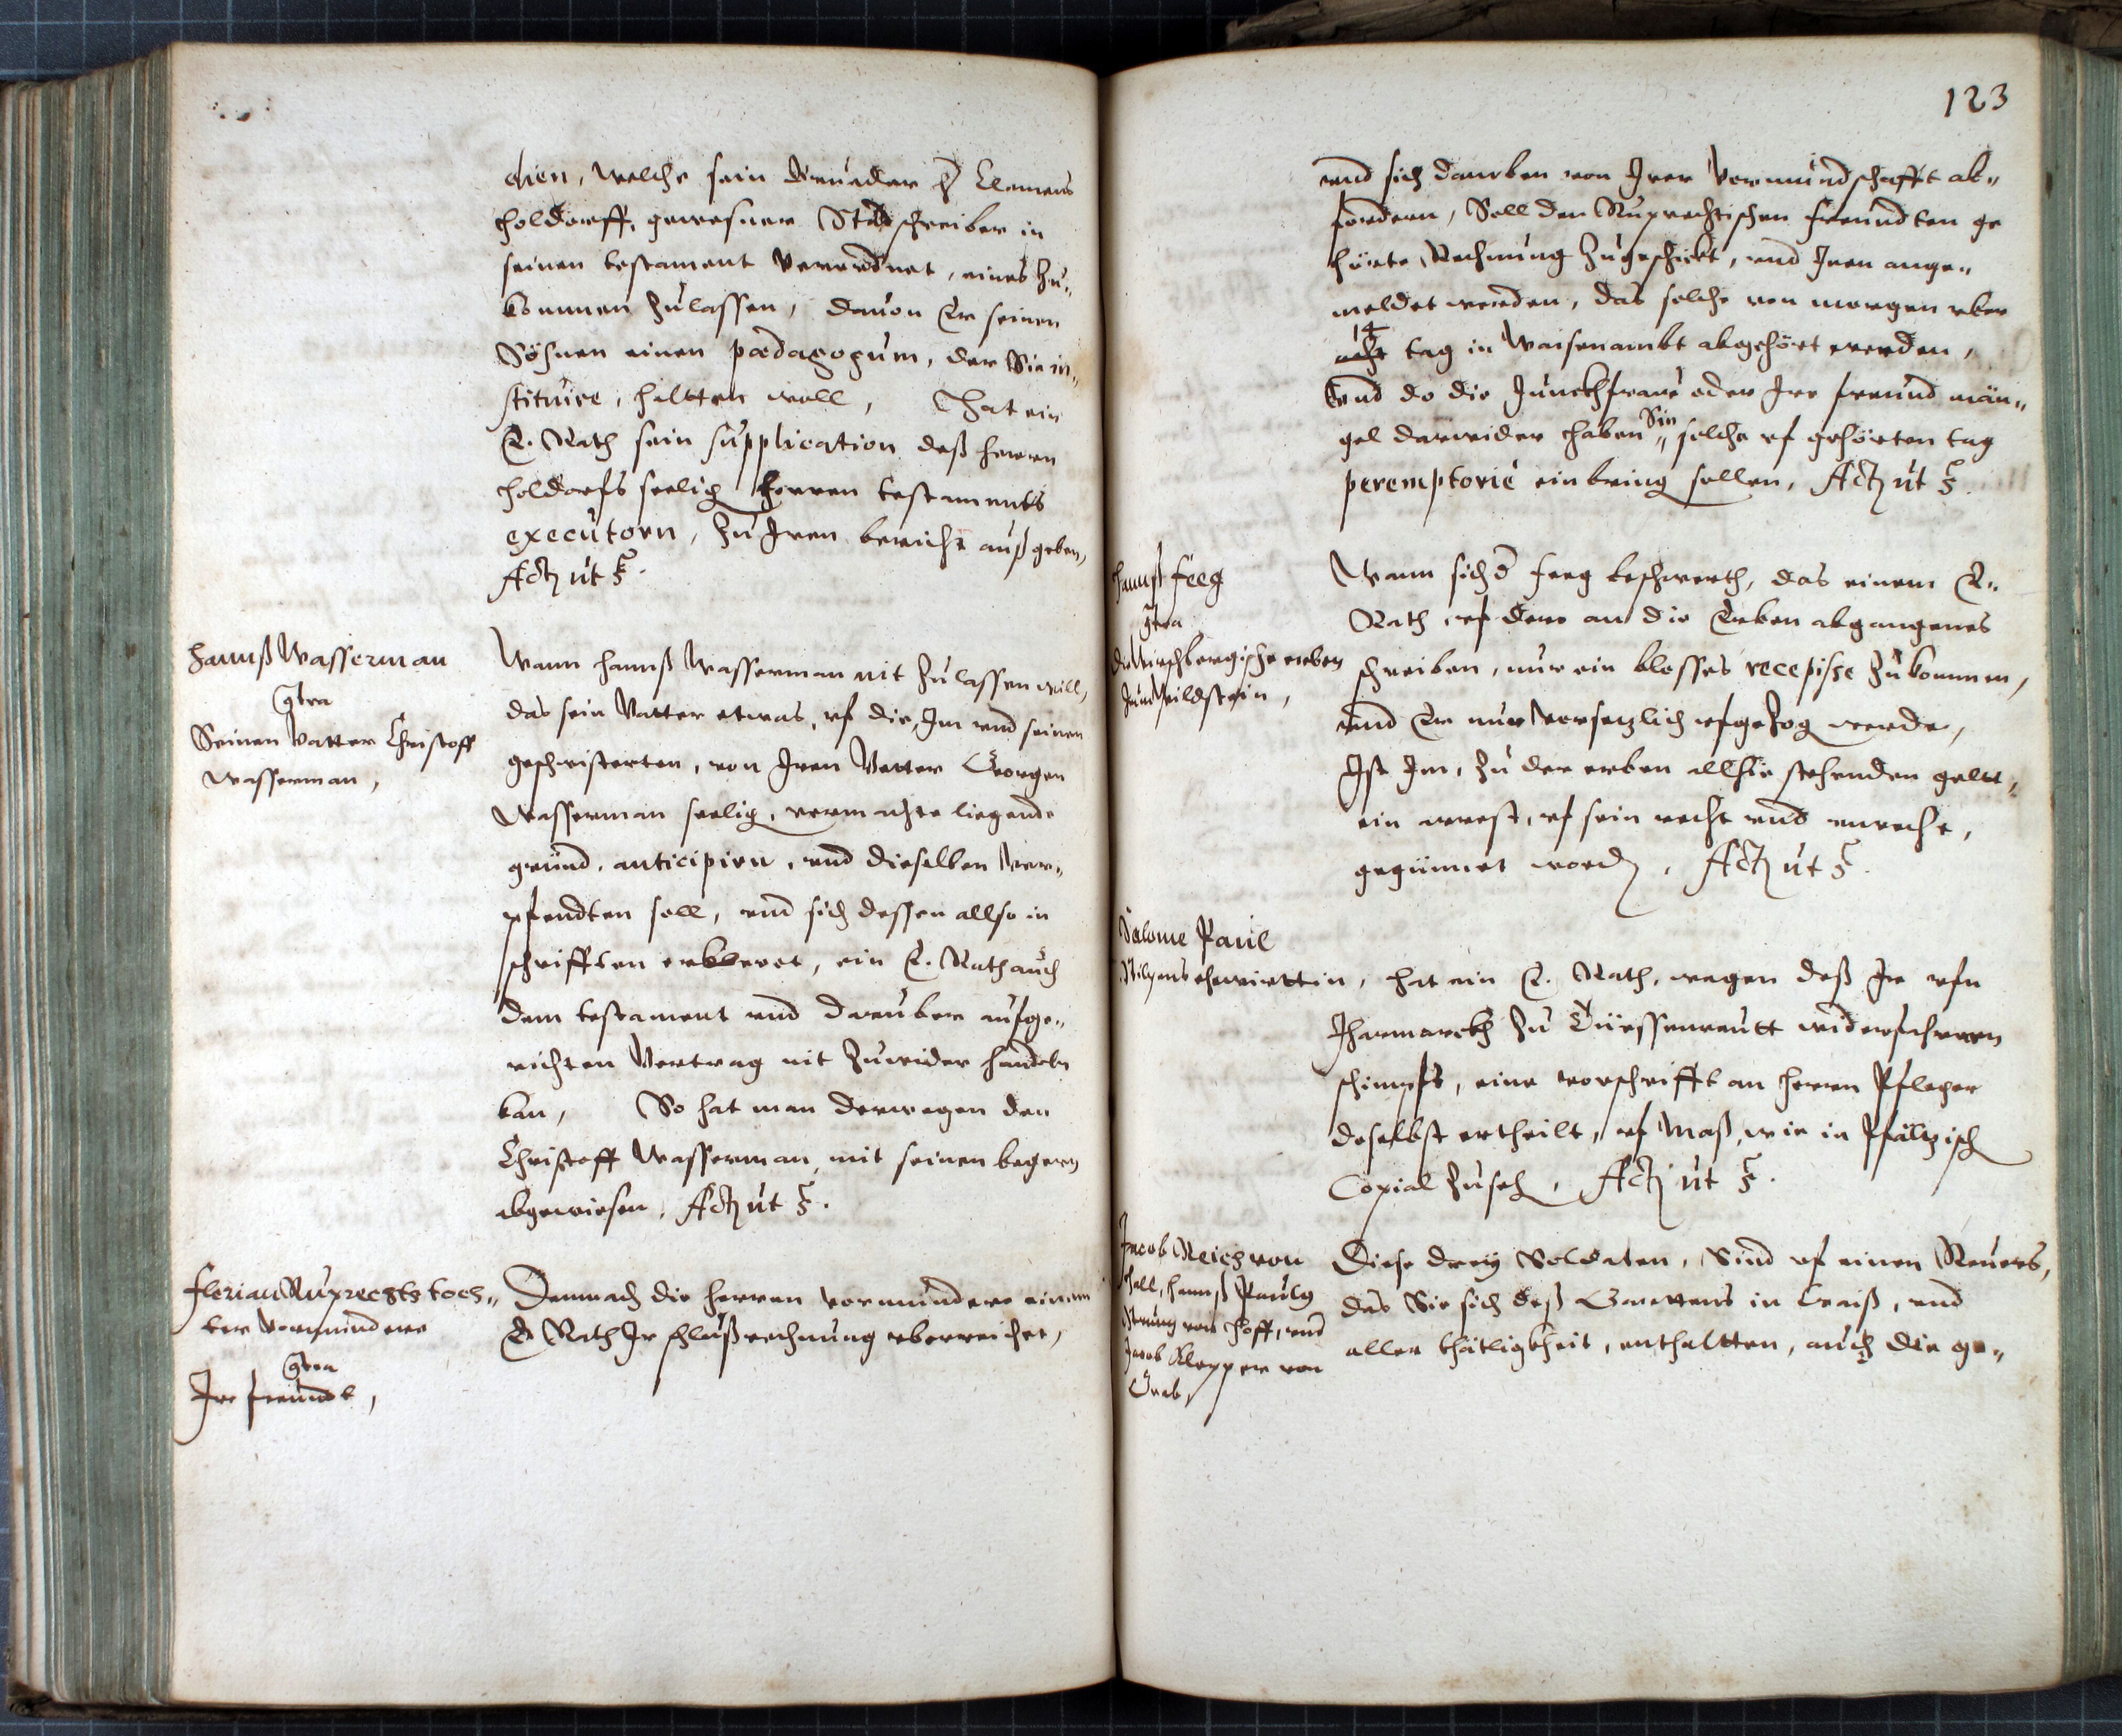 dien, welche sein Brueder H Clemens
Holdorff, gewesner Stadschreiber in
seinen testament verordnet, eines zu„
kommen zulassen, dauon Er seinen
Söhnen einen pædagogum, der Sie in„
stituire, haltten woll, Hat ein
E. Rath sein supplication deß herrn
Holdorfs seelig Herren testaments
executorn, zu Iren bericht auß geben,
Act ut s.
Hannß Wasserman
contra
Seinen Vatter Christoff
Wasserman,
Wann Hannß Wasserman nit zulassen will,
das sein Vatter etwas, uf die, Im und seinen
geschwisterten, von Iren Vetter Georgen
Wasserman seelig, vermachte liegende
gründ, anticipirn, und dieselben ver„
pfendten soll, und sich dessen allso in
schrifften erkleret, ein E. Rath auch
dem testament und darüber aufge„
richten Vertrag nit zuwider handeln
kan, So hat man derwegen den
Christoff Wasserman, mit seinen begern
abgewiesen, Act ut s.
Florian Ruprechts toch„
ter Vormündere
contra
Ire freundt,
Demnach die herren vormündere einem
E Rath Ir schlußrechnung uberreichet,
123
und sich darüber von Irer Vormundschafft ab„
fordern, Soll den Ruprechtischen freundten ge
hörte Rechnung zugeschickt, und Iren ange„
meldet werden, das solche von morgen uber
14
acht tag in Waisenambt abgehört werden,
Und do die Junckhfraue oder Ire freund män„
gel darwider haben Sie solche uf gehörten tag
peremptorie einbring sollen, Act ut s.
Hannß Feeg
contra
die Hirschbergische erben
zum Wildstein,
Wann sich Feeg beschwerth, das einem E.
Rath uf dero an die Erben abgangenes
schreiben, nur ein blosses recepisse zukommen,
und Er nur versetzlich ufgezog werde,
Ist Im, zu der erben allhie stehenden gellt,
ein arrest, uf sein recht und unrecht,
gegünnet word, Act ut s.
Salome Paul
ehewirttin, hat ein E. Rath, wegen deß Ir ufn
Jharmarckh zu Türssenreutt widerfahrnen
schimpfs, eine vorschrifft an herrn Pfleger
doselbst ertheilt, uf Maß, wie in Pfältzisch
Copial zuseh, Act ut s.
Jacob Reich von
Hall, Hannß Pauly
von Hoff, und
Jacob Klepper von
Diese drey Soldaten, Sind uf einen Reuers,
das Sie sich deß Garttens in Craiß, und
aller thätligkheit, enthaltten, auch die ge„